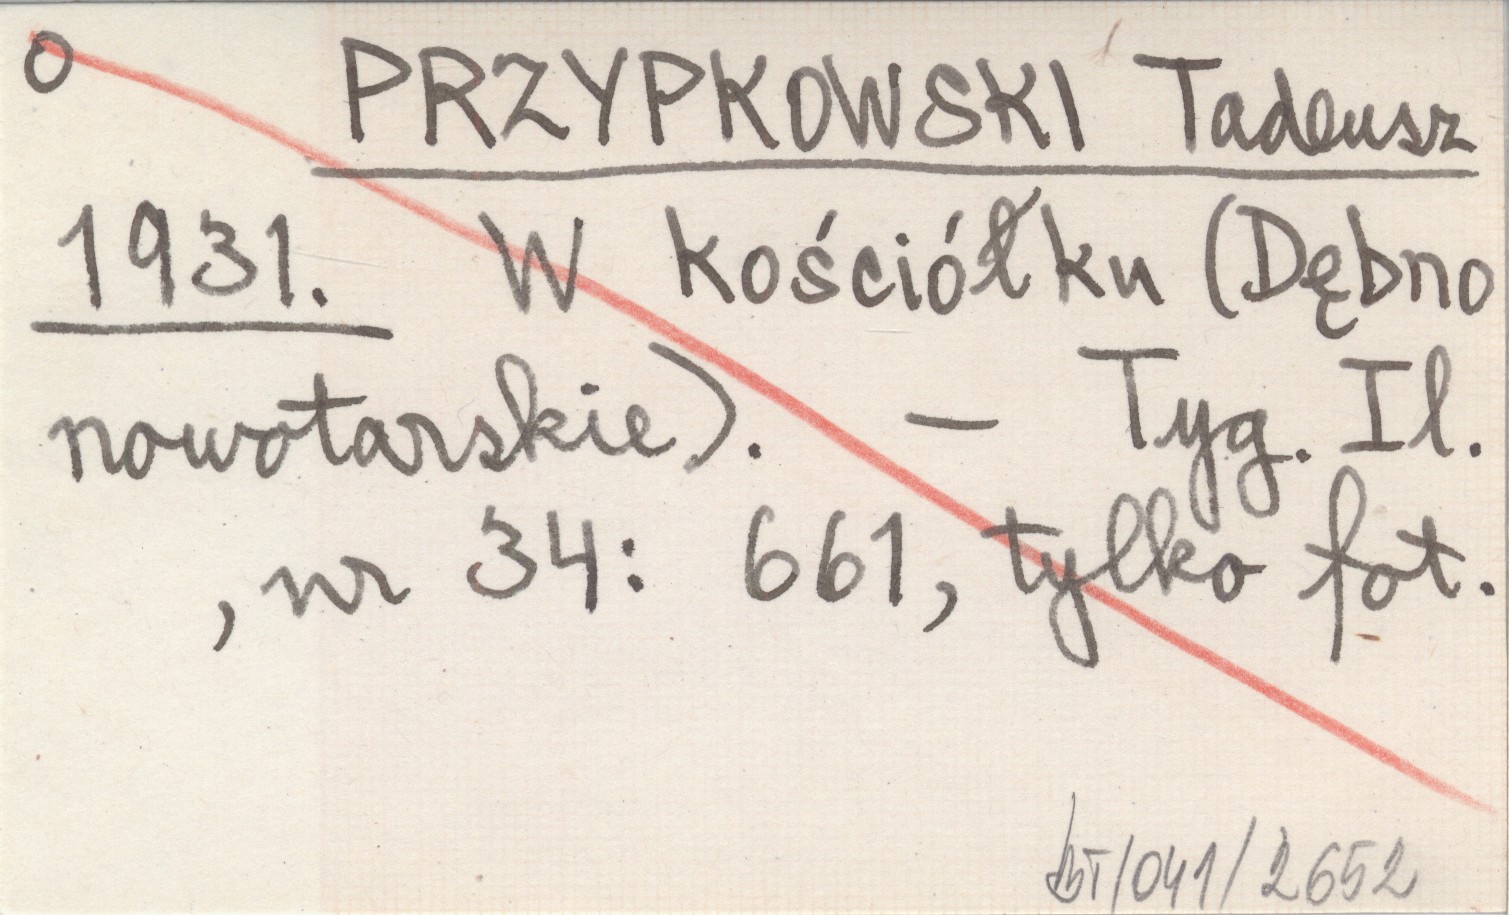 O PRZYPKOWSKI Tadeusz
1931. W kościółku (Dębno
nowotarskie). – Tyg. Il.
, nr 34: 661, tylko fot.
/041/2652